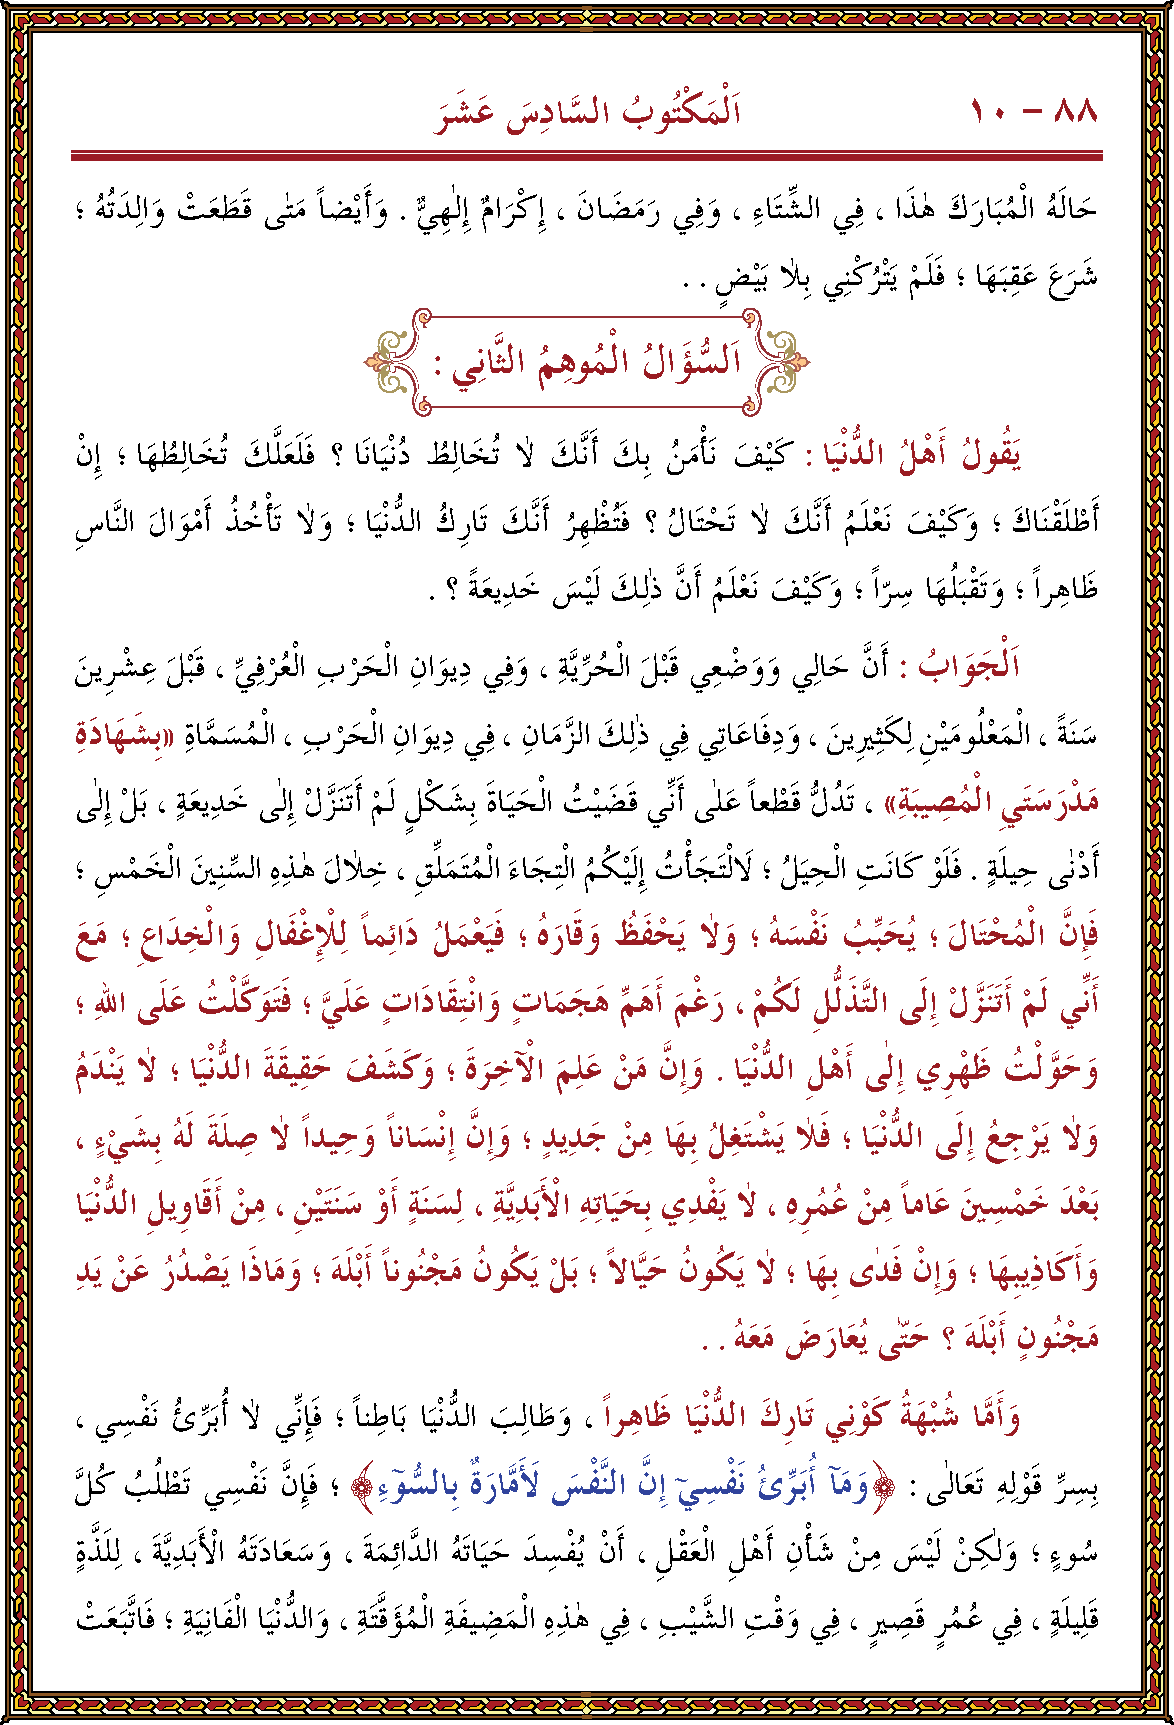 ٨٨ – ١٠ اَلْمَكْتُوبُ السَّادِسَ عَشَرَ
حَالَهُ الْمُبَارَكَ هٰذَا ، فِي الشِّتَاءِ ، وَفِي رَمَضَانَ ، إِكْرَامٌ إِلٰهِيٌّ . وَأَيْضاً مَتٰى قَطَعَتْ وَالِدَتُهُ ؛
شَرَعَ عَقِبَهَا ؛ فَلَمْ يَتْرُكْنِي بِلاٰ بَيْضٍ . .
اَلسُّؤَالُ الْمُوهِمُ الثَّانِي :
يَقُولُ أَهْلُ الدُّنْيَا : كَيْفَ نَأْمَنُ بِكَ أَنَّكَ لاٰ تُخَالِطُ دُنْيَانَا ؟ فَلَعَلَّكَ تُخَالِطُهَا ؛ إِنْ
أَطْلَقْنَاكَ ؛ وَكَيْفَ نَعْلَمُ أَنَّكَ لاٰ تَحْتَالُ ؟ فَتُظْهِرُ أَنَّكَ تَارِكُ الدُّنْيَا ؛ وَلاٰ تَأْخُذُ أَمْوَالَ النَّاسِ
ظَاهِراً ؛ وَتَقْبَلُهَا سِرّاً ؛ وَكَيْفَ نَعْلَمُ أَنَّ ذٰلِكَ لَيْسَ خَدِيعَةً ؟ .
اَلْجَوَابُ : أَنَّ حَالِي وَوَضْعِي قَبْلَ الْحُرِّيَّةِ ، وَفِي دِيوَانِ الْحَرْبِ الْعُرْفِيِّ ، قَبْلَ عِشْرِينَ
سَنَةً ، الْمَعْلُومَيْنِ لِكَثِيرِينَ ، وَدِفَاعَاتِي فِي ذٰلِكَ الزَّمَانِ ، فِي دِيوَانِ الْحَرْبِ ، الْمُسَمَّاةِ «بِشَهَادَةِ
مَدْرَسَتَيِ الْمُصِيبَةِ» ، تَدُلُّ قَطْعاً عَلٰى أَنِّي قَضَيْتُ الْحَيَاةَ بِشَكْلٍ لَمْ أَتَنَزَّلْ إِلٰى خَدِيعَةٍ ، بَلْ إِلٰى
أَدْنٰى حِيلَةٍ . فَلَوْ كَانَتِ الْحِيَلُ ؛ لَالْتَجَأْتُ إِلَيْكُمُ الْتِجَاءَ الْمُتَمَلِّقِ ، خِلاٰلَ هٰذِهِ السِّنِينَ الْخَمْسِ ؛
فَإِنَّ الْمُحْتَالَ ؛ يُحَبِّبُ نَفْسَهُ ؛ وَلاٰ يَحْفَظُ وَقَارَهُ ؛ فَيَعْمَلُ دَائِماً لِلْإِغْفَالِ وَالْخِدَاعِ ؛ مَعَ
أَنِّي لَمْ أَتَنَزَّلْ إِلَى التَّذَلُّلِ لَكُمْ ، رَغْمَ أَهَمِّ هَجَمَاتٍ وَانْتِقَادَاتٍ عَلَيَّ ؛ فَتَوَكَّلْتُ عَلَى اللهِ ؛
وَحَوَّلْتُ ظَهْرِي إِلٰى أَهْلِ الدُّنْيَا . وَإِنَّ مَنْ عَلِمَ الْآخِرَةَ ؛ وَكَشَفَ حَقِيقَةَ الدُّنْيَا ؛ لاٰ يَنْدَمُ
وَلاٰ يَرْجِعُ إِلَى الدُّنْيَا ؛ فَلاٰ يَشْتَغِلُ بِهَا مِنْ جَدِيدٍ ؛ وَإِنَّ إِنْسَاناً وَحِيداً لاٰ صِلَةَ لَهُ بِشَيْءٍ ،
بَعْدَ خَمْسِينَ عَاماً مِنْ عُمُرِهِ ، لاٰ يَفْدِي بِحَيَاتِهِ الْأَبَدِيَّةِ ، لِسَنَةٍ أَوْ سَنَتَيْنِ ، مِنْ أَقَاوِيلِ الدُّنْيَا
وَأَكَاذِيبِهَا ؛ وَإِنْ فَدٰى بِهَا ؛ لاٰ يَكُونُ حَيَّالاً ؛ بَلْ يَكُونُ مَجْنُوناً أَبْلَهَ ؛ وَمَاذَا يَصْدُرُ عَنْ يَدِ
مَجْنُونٍ أَبْلَهَ ؟ حَتّٰى يُعَارَضَ مَعَهُ . .
وَأَمَّا شُبْهَةُ كَوْنِي تَارِكَ الدُّنْيَا ظَاهِراً ، وَطَالِبَ الدُّنْيَا بَاطِناً ؛ فَإِنِّي لاٰ أُبَرِّئُ نَفْسِي ،
بِسِرِّ قَوْلِهِ تَعَالٰى : ﴿وَمَآ أُبَرِّئُ نَفْسِيٓ إِنَّ النَّفْسَ لَأَمَّارَةٌ بِالسُّوٓءِ﴾ ؛ فَإِنَّ نَفْسِي تَطْلُبُ كُلَّ
سُوءٍ ؛ وَلٰكِنْ لَيْسَ مِنْ شَأْنِ أَهْلِ الْعَقْلِ ، أَنْ يُفْسِدَ حَيَاتَهُ الدَّائِمَةَ ، وَسَعَادَتَهُ الْأَبَدِيَّةَ ، لِلَذَّةٍ
قَلِيلَةٍ ، فِي عُمُرٍ قَصِيرٍ ، فِي وَقْتِ الشَّيْبِ ، فِي هٰذِهِ الْمَضِيفَةِ الْمُؤَقَّتَةِ ، وَالدُّنْيَا الْفَانِيَةِ ؛ فَاتَّبَعَتْ